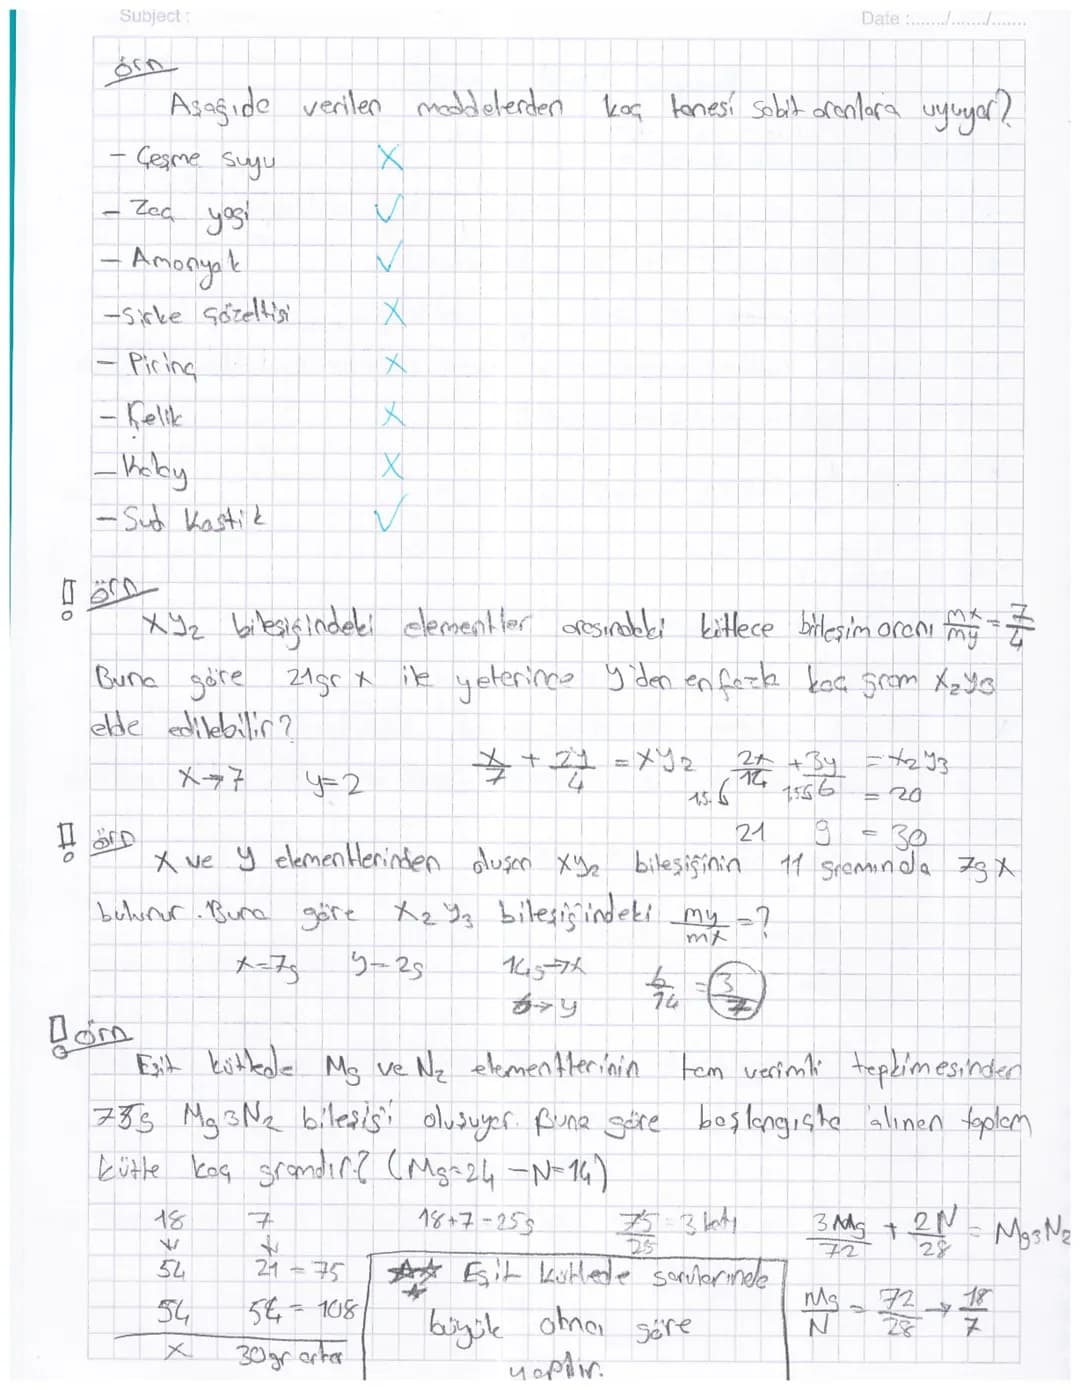 Subject :
Date :......../......../........
örn
Aşağıda verilen maddelerden kaç tanesi sabit oranlara uyuyor?
- Çeşme suyu X
- Zaç yağı ✓
- Amonyak ✓
- Sirke Çözeltisi X
- Pirinç X
- Çelik X
- Kolay X
- Sud Kastik ✓
! örn
XY₂ bileşiğindeki elementler arasındaki kütlece birleşim oranı mx/my = 7/4
Buna göre 21gr x ile yeterince y'den en fazla kaç gram X₂Y₃
elde edilebilir?
X→7 y=2
X/7 + 2y/4 = XY₂
2x/14 + 3y/6 = X₂Y₃
= 20
21 9 = 30
! örn
X ve y elementlerinden oluşan XY₂ bileşiğinin 11 gramında 7g X
bulunur. Buna göre X₂Y₃ bileşiğindeki my/mx = ?
x=7g y=2g 14g→x 6/14 = 3/7
6→y
! örn
Eşit kütlede Mg ve N₂ elementlerinin tam verimli tepkimesinden
75g Mg3N₂ bileşiği oluşuyor. Buna göre başlangıçta alınan toplam
kütle kaç gramdır? (Mg=24 - N=14)
18 7 18+7=25g 75/25 = 3 katı 3Mg/72 + 2N/28 = Mg3N₂
54 21 = 75
54 54 = 108
X 30gr artar
Mg/N = 72/28 → 18/7
Eşit kütlede sorularında
büyük olana göre
yapılır.